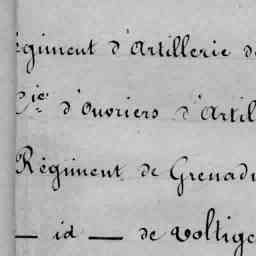 égiment d'Artillerie de
Cie d'Ouvriers d'Artil
Régiment de Grenadi
— id — de Voltige